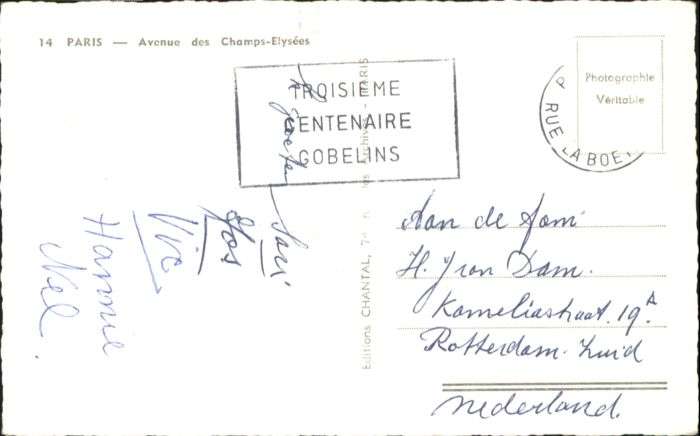 14 PARIS — Avenue des Champs-Elysées
TROISIEME
CENTENAIRE
GOBELINS
Photographie
Véritable
RUE LA BOE
groeten
Jos
Vic
Hannie
Nel.
Editions CHANTAL, 74
PARIS
Aan de fam
H. J van Dam.
Kameliastraat. 19A.
Rotterdam. Zuid
Nederland.